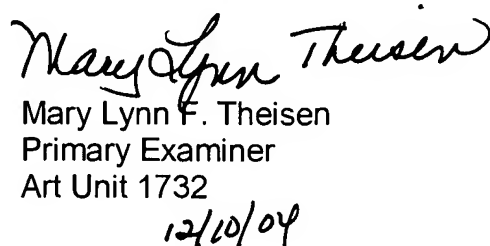 Mary Lynn Theisen
Mary Lynn F. Theisen
Primary Examiner
Art Unit 1732
12/10/04